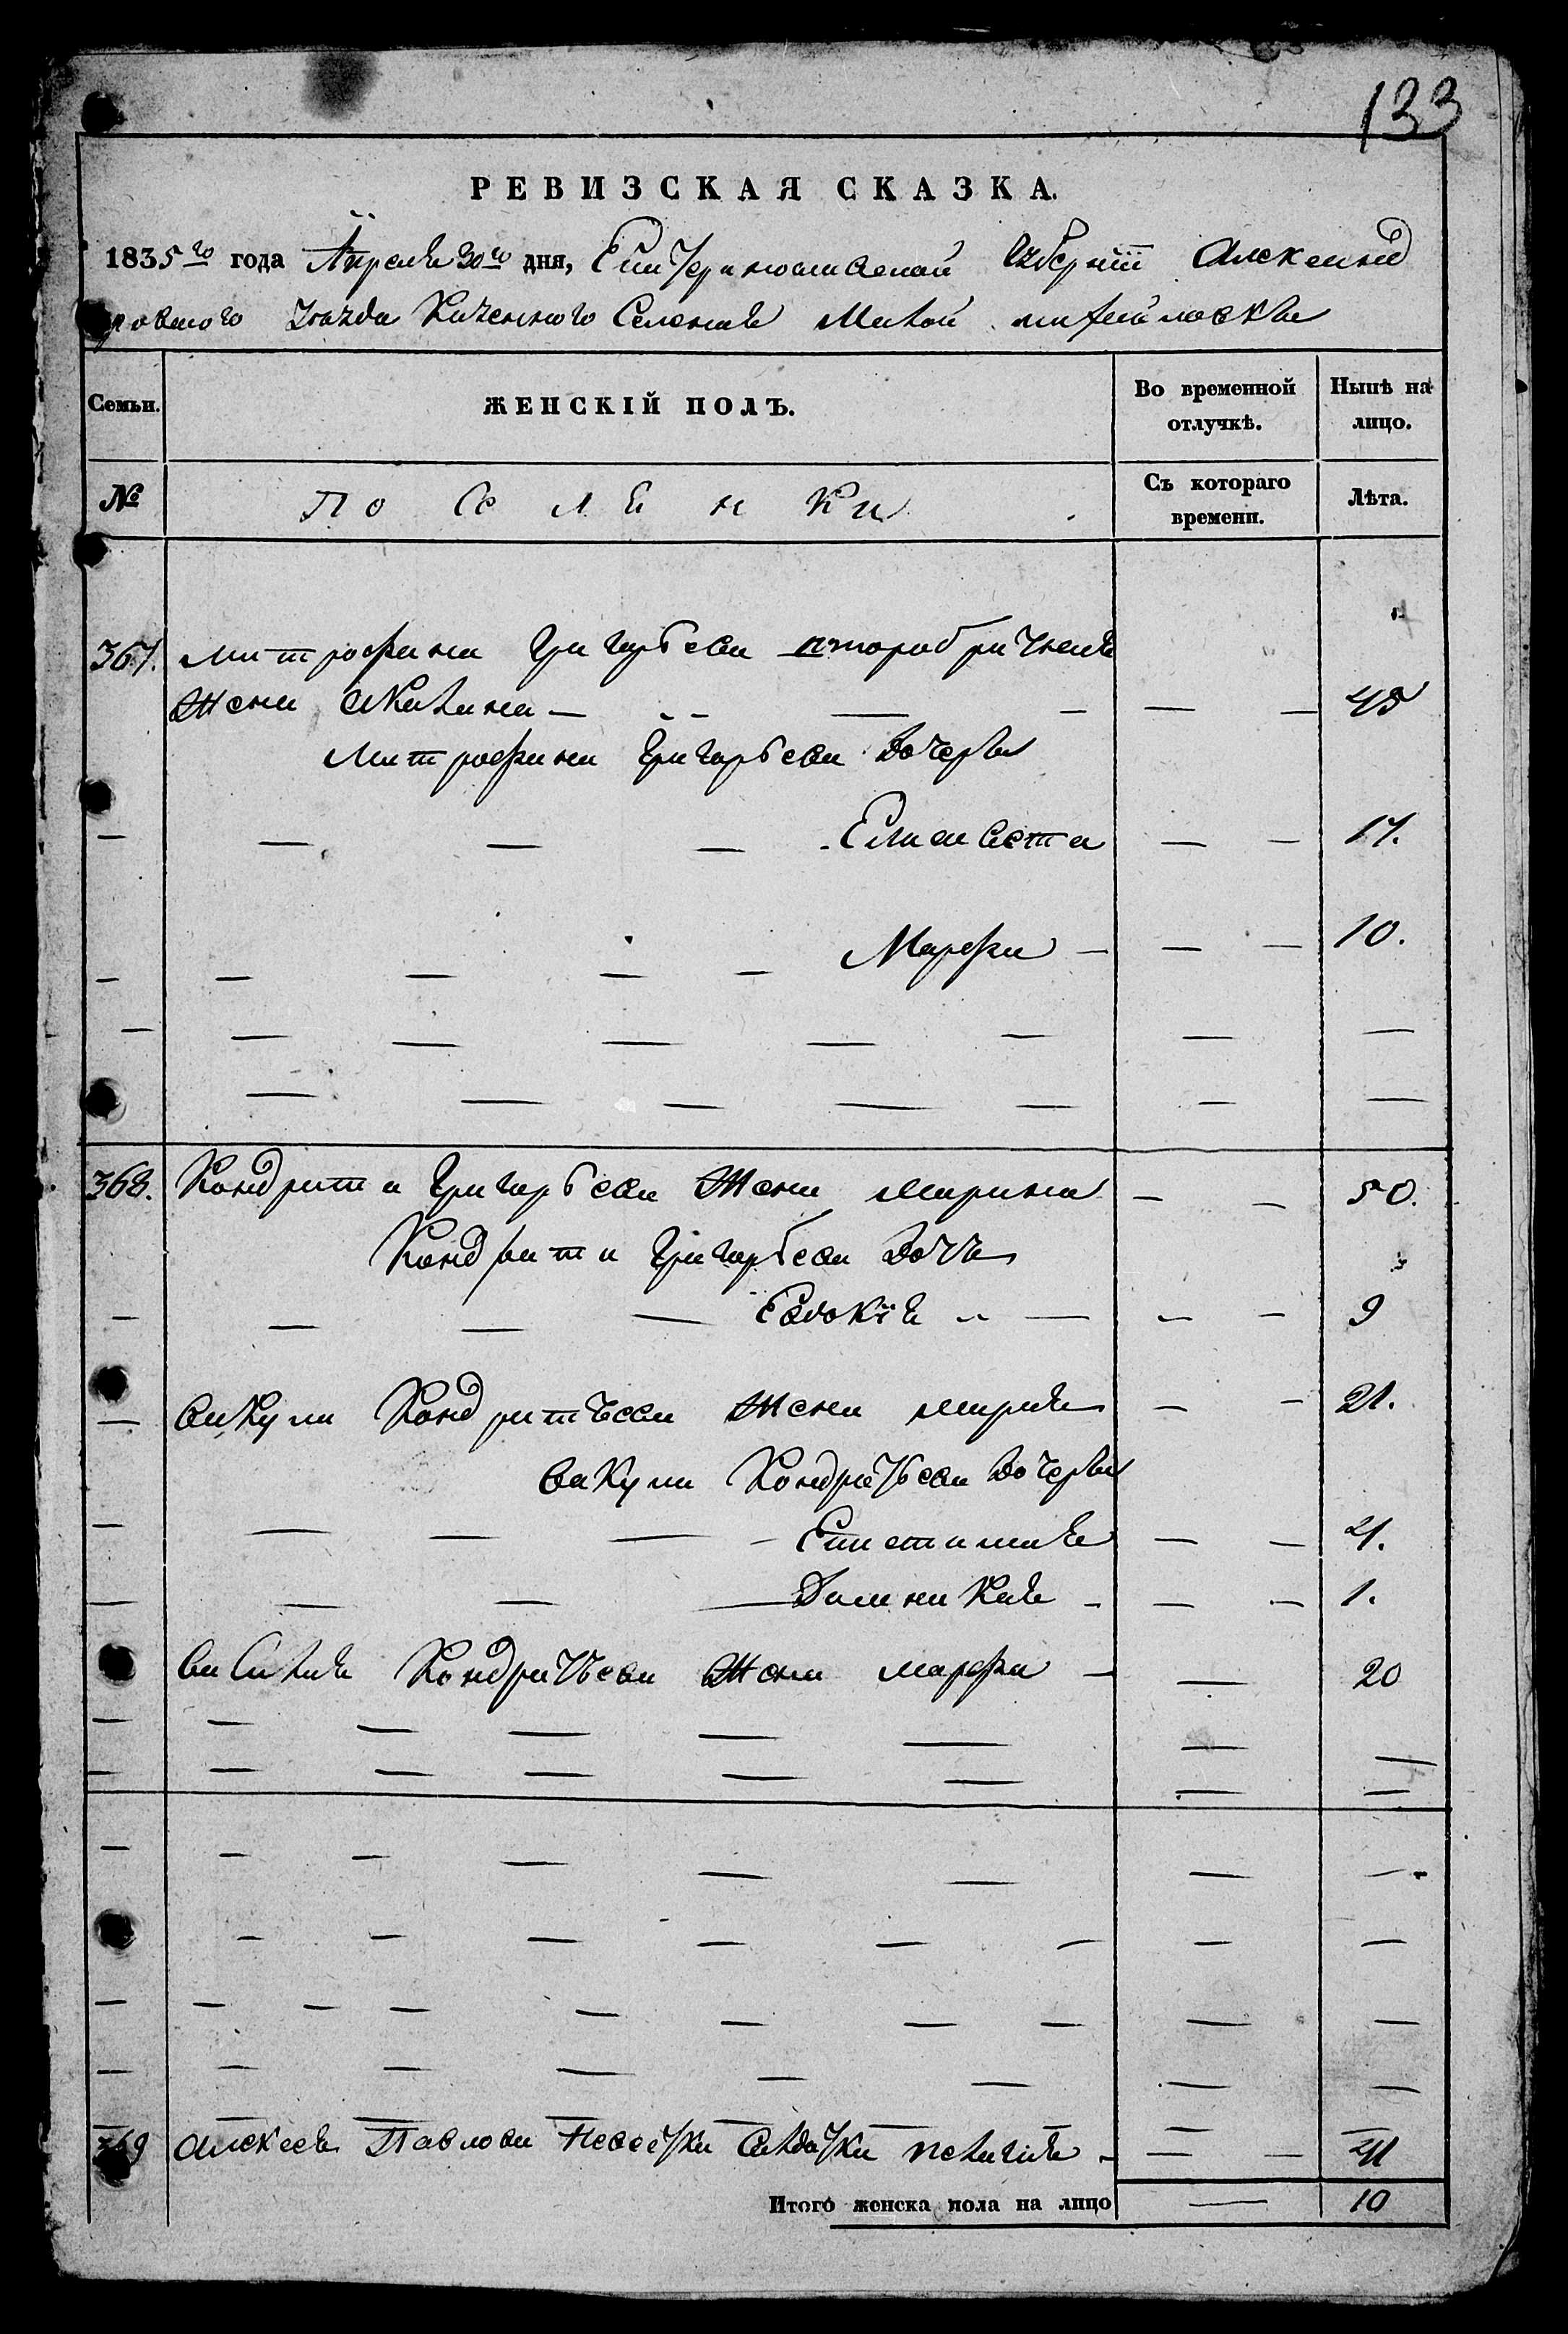 133
РЕВИЗСКАЯ СКАЗКА.
1835го года Апреля 30го дня, Екатеринославской Губернии Александ
ровского уезда Казенного Селения Малой михайловки
Семьи. ЖЕНСКІЙ ПОЛЪ. Во временной отлучкѣ. Нынѣ на лицо.
№ Поселенки Съ котораго времени. Лѣта.
367. митрофана Григорьева второбрачная
жена акилина — — — — — 45
Митрофана Григорьева дочери
— — — — Елисавета — — 17.
— — — — — Марфа — — — 10.
— — — — — — — —
— — — — — — —
368. Кондрата Григорьева жена марина — — 50.
Кондрата Григорьева дочь
— — — — Евдокія — — — — 9
— вакулы Кондратьева жена мария — — 21.
вакулы Кондратьева дочери
— — — — — Епистимия — — 4.
— — — — Домникия — — — 1.
василия Кондратьева жена марфа — — 20
— — — — — — — —
— — — — — — — —
— — — — — — — —
— — — — — — — —
— — — — — — — — —
— — — — — — — —
— — — — — —
369 алексея Павлова солдатка пелагия — — — 41
Итого женска пола на лицо — 10